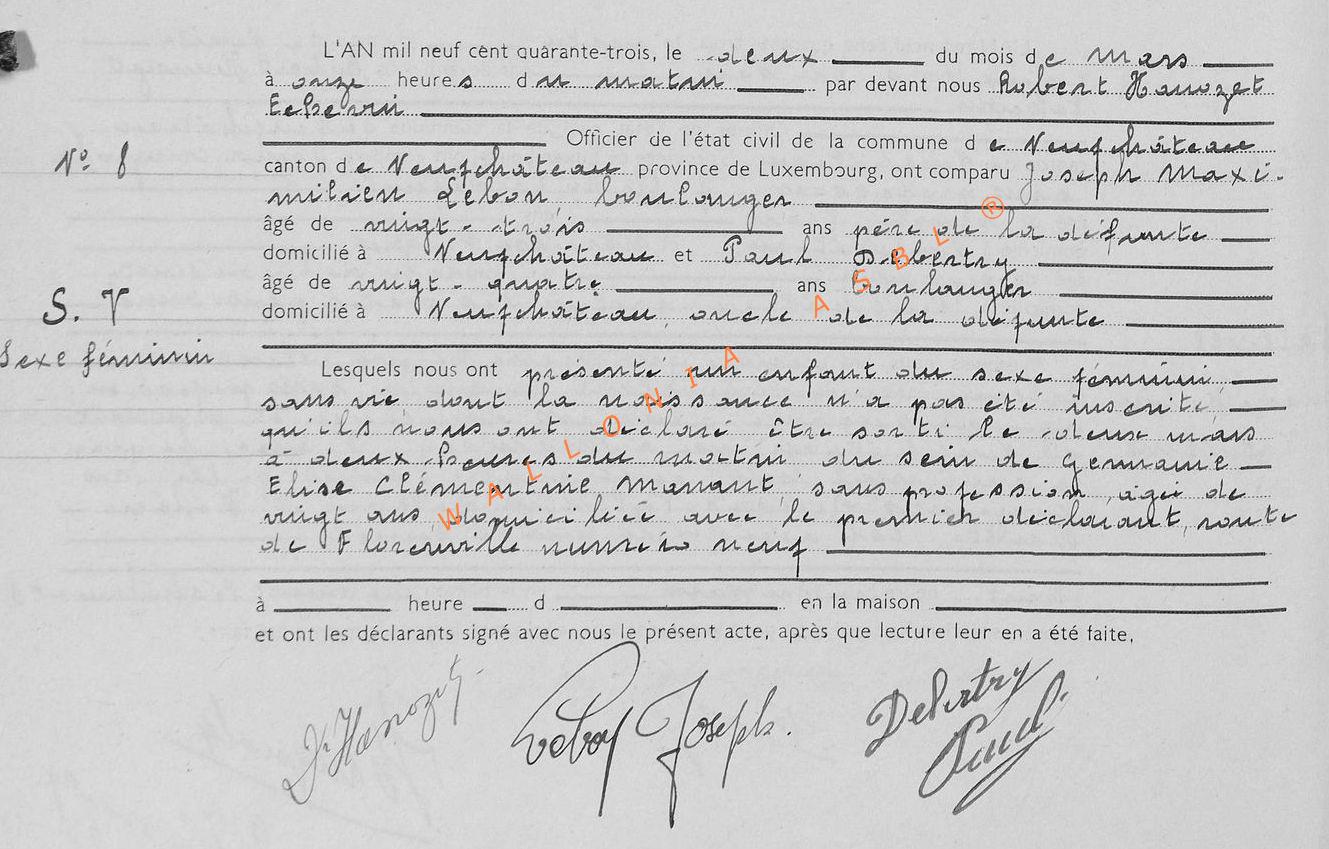 L'AN mil neuf cent quarante-trois, le deux du mois de Mars
à onze heures du matin par devant nous Robert Hanozet
Echevin
Officier de l'état civil de la commune de Neufchâteau
N° 8
canton de Neufchâteau province de Luxembourg, ont comparu Joseph Maxi-
milien Lebon boulanger
âgé de vingt-trois ans père de la défunte
domicilié à Neufchâteau et Paul Debertry
âgé de vingt-quatre ans boulanger
S. V
domicilié à Neufchâteau, oncle de la défunte
Sexe féminin
Lesquels nous ont présenté un enfant du sexe féminin,
sans vie dont la naissance n'a pas été inscrite,
qu'ils nous ont déclaré être sorti le deux mars
à deux heures du matin du sein de Germanie
Elise Clémentine Manant, sans profession, âgée de
vingt ans, domiciliée avec le premier déclarant, route
de Florenville numéro neuf
à heure d en la maison
et ont les déclarants signé avec nous le présent acte, après que lecture leur en a été faite,
Dr Hanozet
Lebon Joseph.
Debertry
Paul
WALLONIA ASBL ®